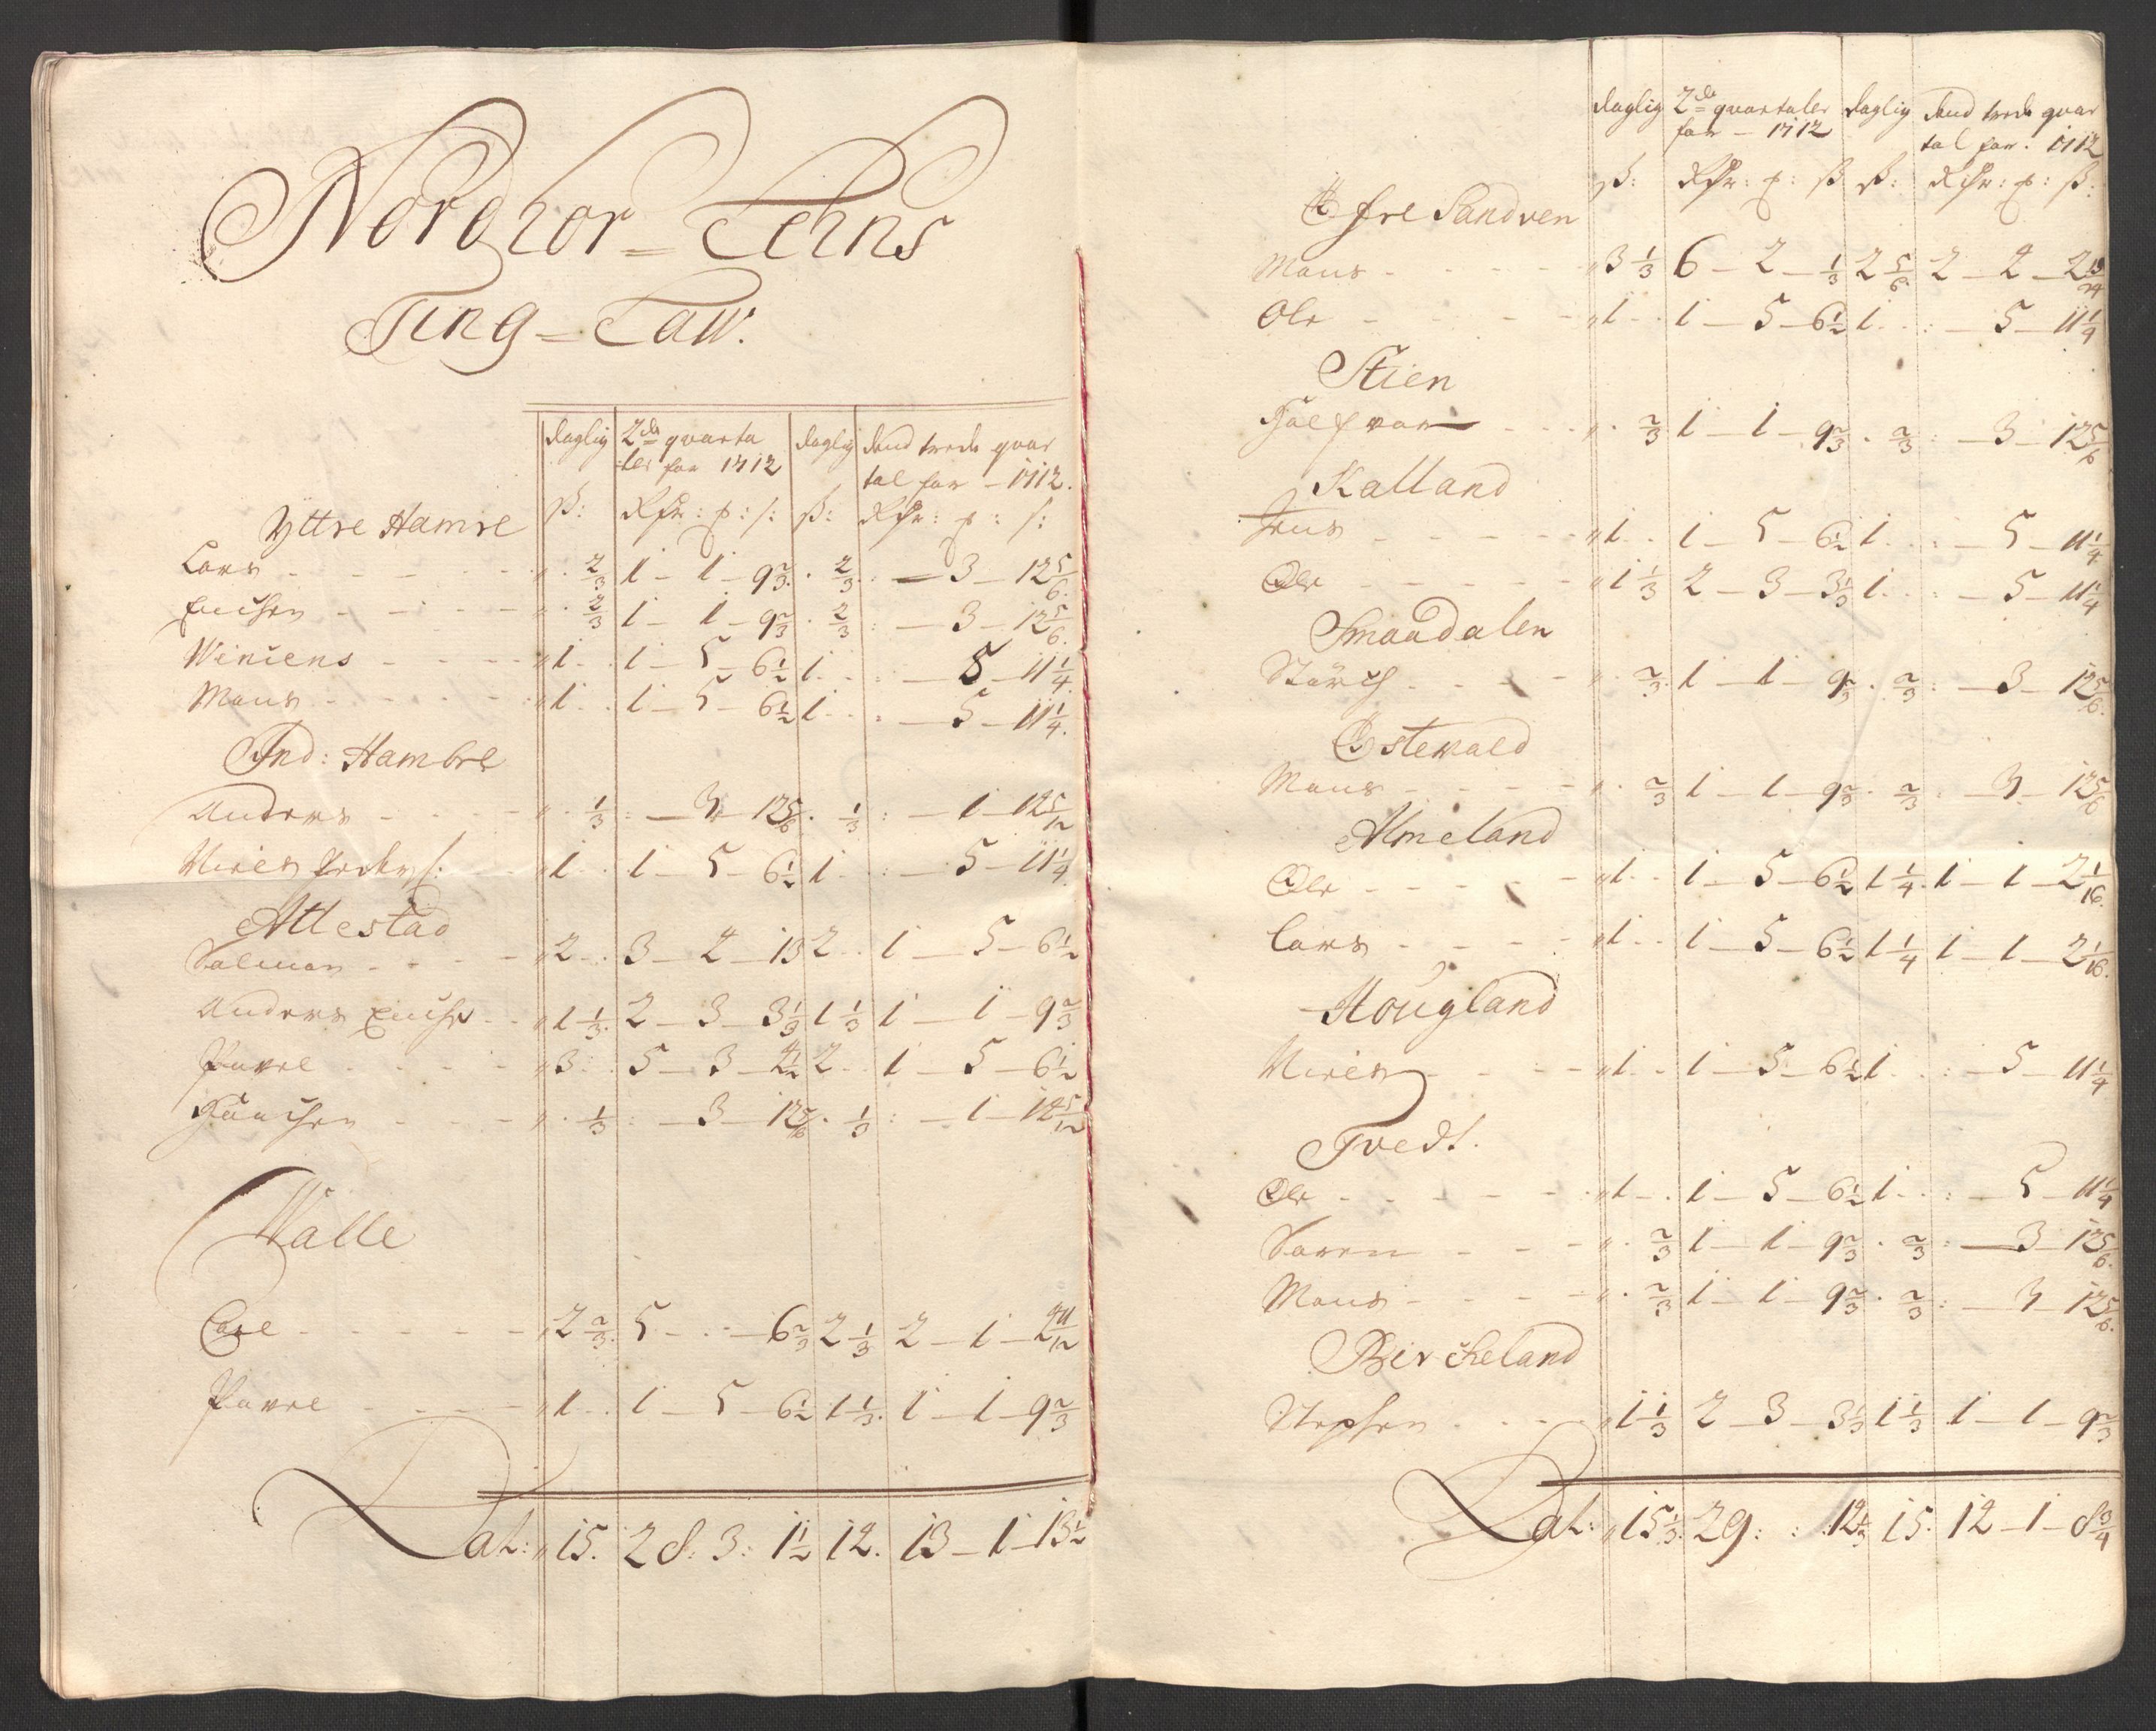 Nordhor = Lehns
Ting = Law.
daglig 2de qvarta daglig dend trede qvar
:ler for 1712 tal for – 1712.
ß: Rdr: ß: Rdr:
Yttre Hamre
Lars - - - „ · 2/3 1 – 1 – 9 2/3 · 2/3 : – 3 – 12 5/6
„ · 2/3 1 – 1 – 9 2/3 · 2/3 : – 3 – 12 5/6
Winiens - - - „ 1 · · 1 – 5 – 6 1/2 1 · · : – 5 – 11 1/4
Mons - - - „ 1 · · 1 – 5 – 6 1/2 1 · · : – 5 – 11 1/4
Ind: Hambre
Anders - - - „ · 1/3 : – 3 – 12 5/6 · 1/3 : – 1 – 14 5/12
Niels „ 1 · · 1 – 5 – 6 1/2 1 · · : – 5 – 11 1/4
Allestad
Salmon - - - „ 2 · · 3 – 4 – 13 2 · · 1 – 5 – 6 1/2
Anders „ 1 1/3 2 – 3 – 3 1/3 1 1/3 1 – 1 – 9 2/3
Povel - - - „ 3 : 5 – 3 – 4 1/2 2 · · 1 – 5 – 6 1/2
„ · 1/3 : – 3 – 12 5/6 · 1/3 : – 1 – 14 5/12
Walle
„ 2 2/3 5 – · – 6 2/3 2 1/3 2 – 1 – 2 11/12
Povel - - - „ 1 · · 1 – 5 – 6 1/2 1 1/3 1 – 1 – 9 2/3
Lat: „ 15. 28: 3: 1 1/2 12. 13 – 1 – 13 1/2
daglig 2de qvartaler daglig dend trede qvar
for – 1712 tal for: 1712
ß: Rdr: ß ß: Rdr: ß:
Øfre Sandven
Mons - - - „ 3 1/3 6 – 2 – 1/3 2 5/6 2 – 4 – 2 19/24
Ole - - - „ 1 · · 1 – 5 – 6 1/2 1 · · : – 5 – 11 1/4
Stien
Halfvor - - - „ · 2/3 1 – 1 – 9 2/3 · 2/3 : – 3 – 12 5/6
Kalland
Jens - - - „ 1 · · 1 – 5 – 6 1/2 1 · · : – 5 – 11 1/4
Ole - - - „ 1 1/3 2 – 3 – 3 1/3 1 · · : – 5 – 11 1/4
Smaadalen
„ · 2/3 1 – 1 – 9 2/3 · 2/3 : – 3 – 12 5/6
Østevold
Mons - - - „ · 2/3 1 – 1 – 9 2/3 · 2/3 : – 3 – 12 5/6
Almeland
Ole - - - „ 1 · · 1 – 5 – 6 1/2 1 1/4 1 – 1 – 2 1/16
Lars - - - „ 1 · · 1 – 5 – 6 1/2 1 1/4 1 – 1 – 2 1/16
Hougland
Niels - - - „ 1 · · 1 – 5 – 6 1/2 1 · · : – 5 – 11 1/4
Tvedt.
Ole - - - „ 1 · · 1 – 5 – 6 1/2 1 · · : – 5 – 11 1/4
Soren - - - „ · 2/3 1 – 1 – 9 2/3 · 2/3 : – 3 – 12 5/6
Mons - - - „ · 2/3 1 – 1 – 9 2/3 · 2/3 : – 3 – 12 5/6
Bircheland
Stephen - - - „ 1 1/3 2 – 3 – 3 1/3 1 1/3 1 – 1 – 9 2/3
Lat: „ 15 1/3. 29: : 12 1/3 15. 12 – 1 – 8 3/4